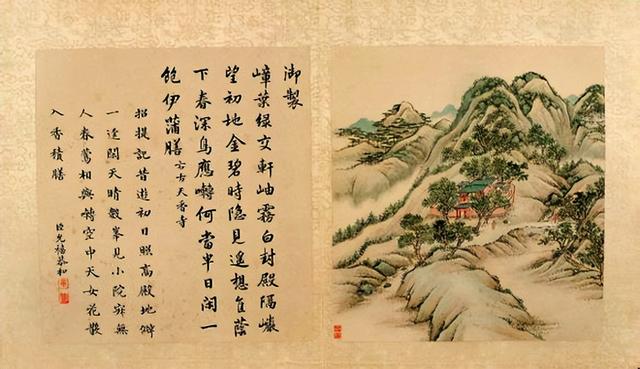 御製
嶂葉綠交軒岫霧白封殿隔巘
望初地金碧時隐見遙想佳蔭
下春深鳥應囀何當半日閑一
飽伊蒲膳 右古天香寺
招提記昔遊初日照高殿地僻
一逕闃天晴數峯見小院寂無
人春鶯相與囀空中天女花散
入香積膳
臣允禧恭和